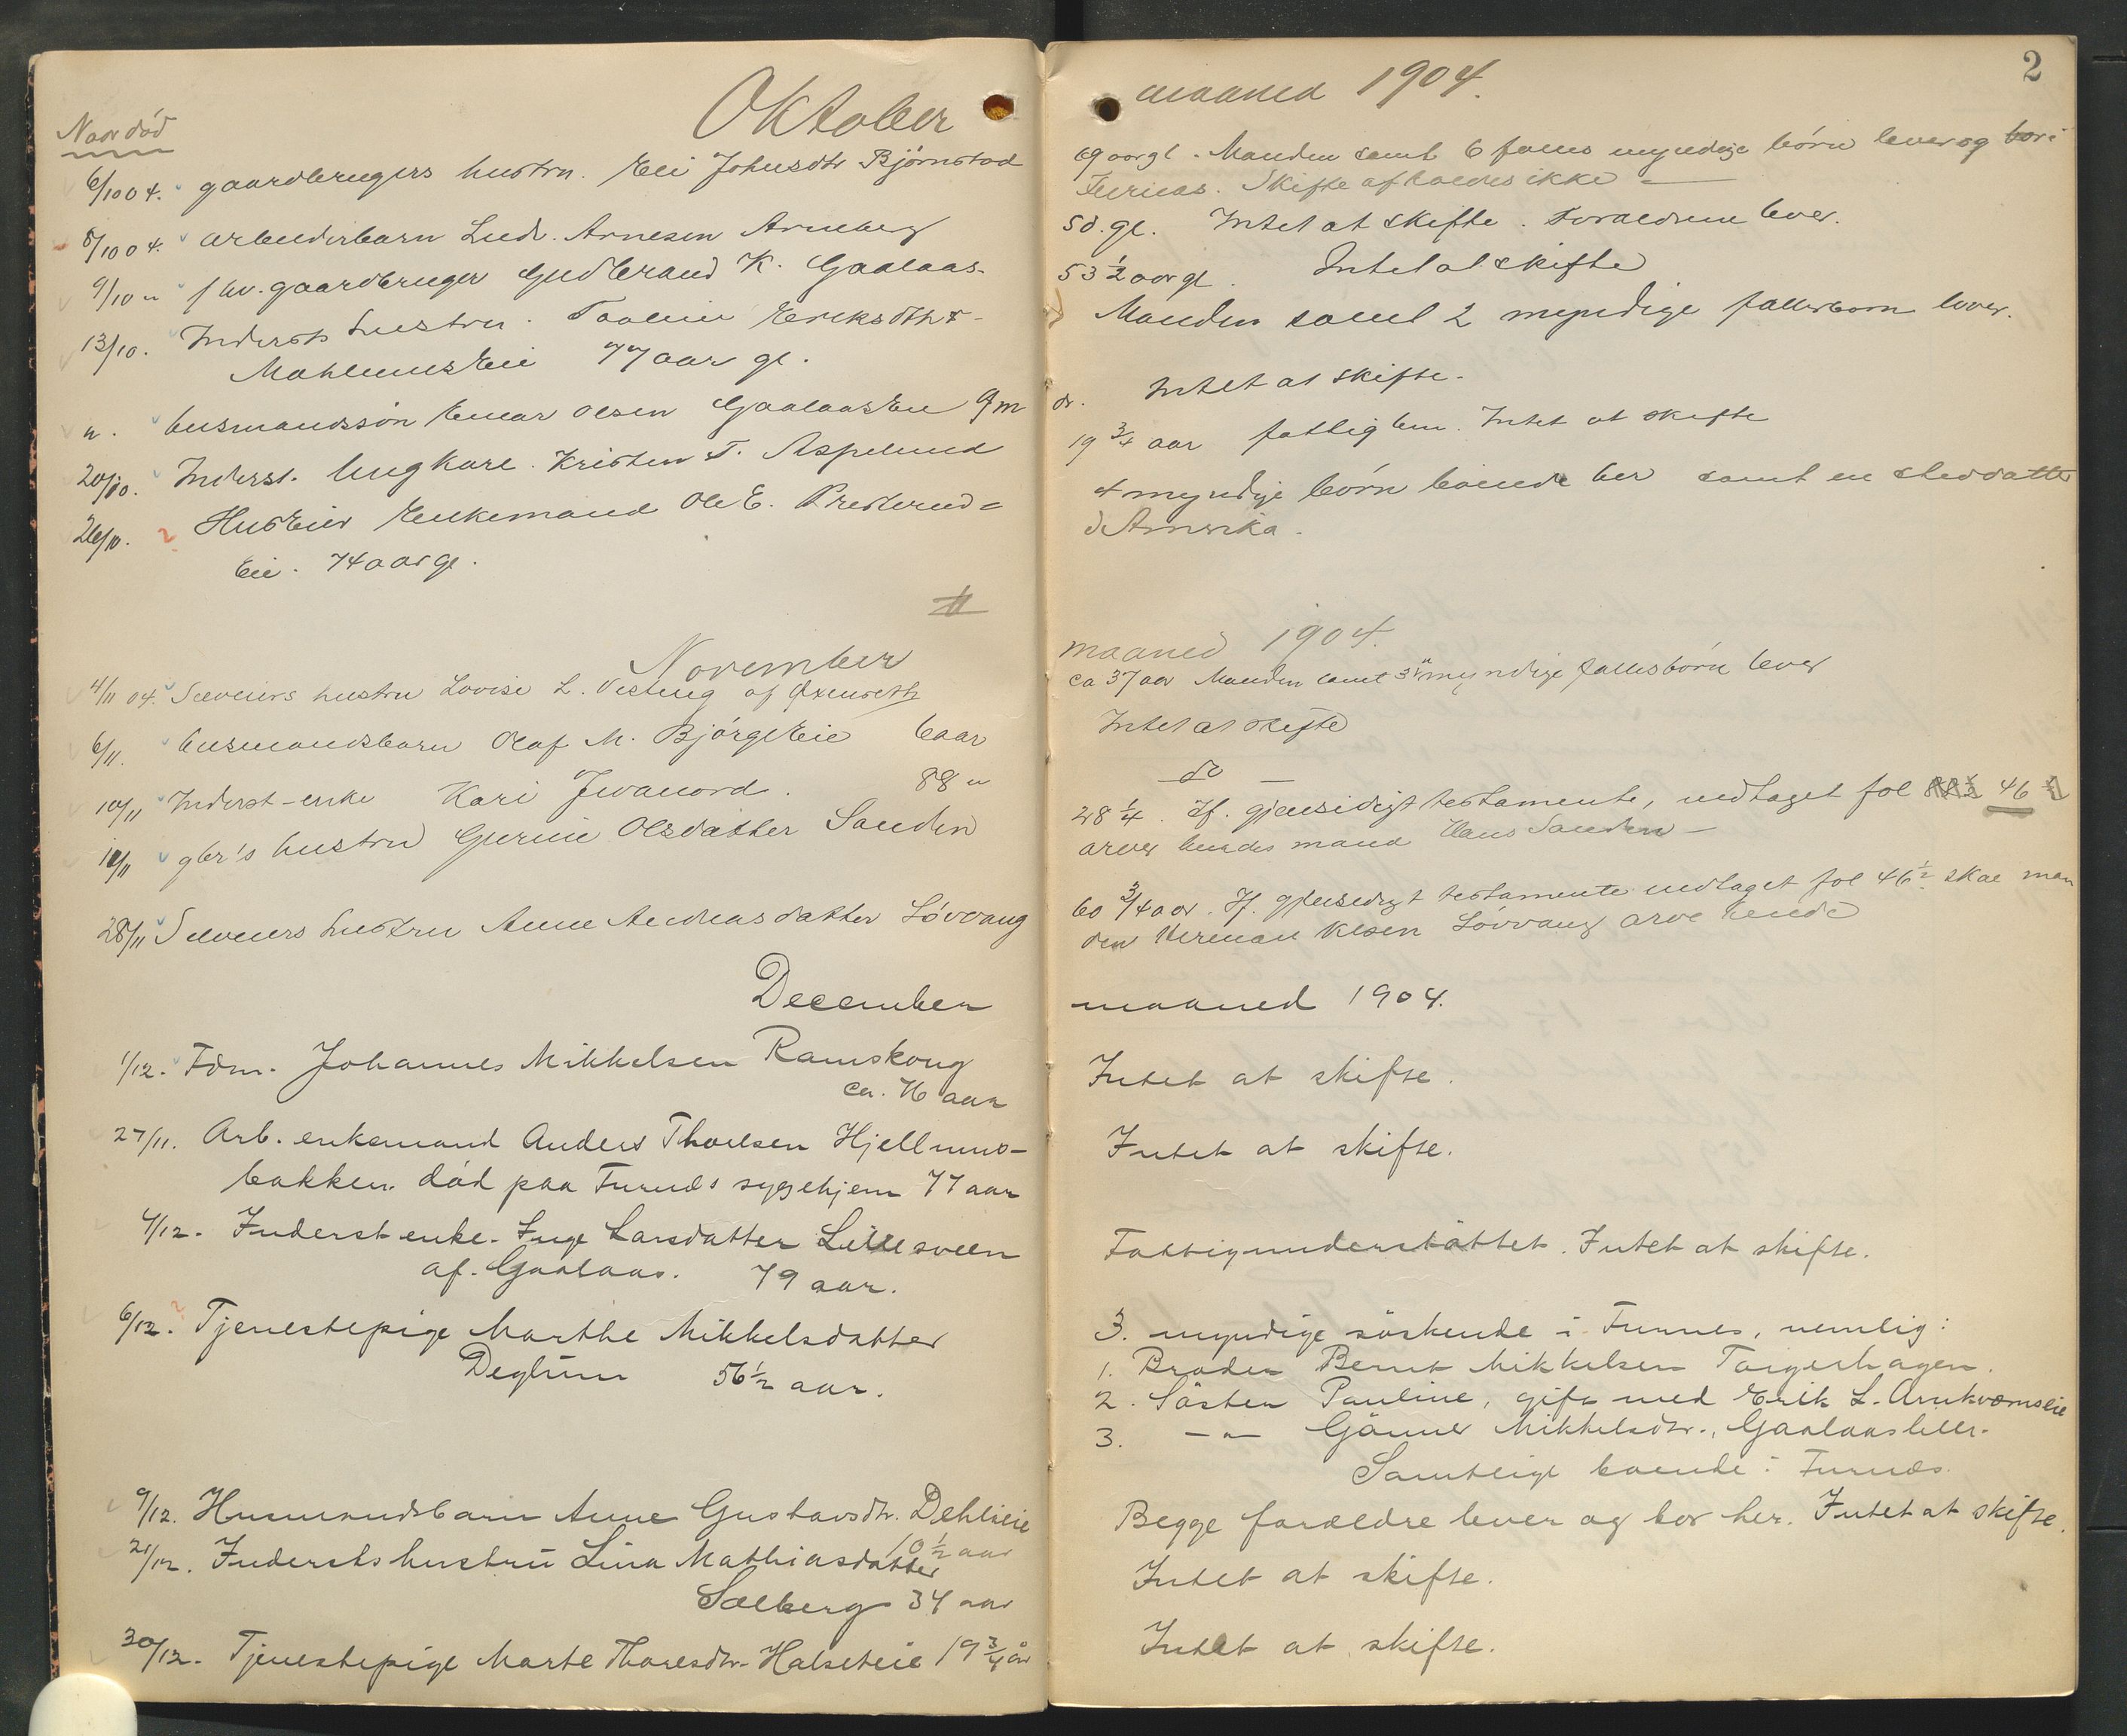 Oktober
Naar död
6/10 04. gaardbrugers hustru. Eli Johnsdtr Bjørnstad
8/10 04. arbeiderbarn Ludv. Arnesen Arneberg
9/10 " fhv. gaardbruger Gudbrand K. Gaalaas-
13/10. Inderst hustru. Taaline Eriksdtr
Mahlumseie 77 aar gl.
". husmandssön Einar Olsen Gaalaaseie 9 m
20/10. Inderst. Ungkarl. Kristen T. Aspelund
26/10. ? Huseier Enkemand Ole E. Presterud=
eie. 74 aar gl.
November
4/11 04. Selveiers hustru Lovise L. Vesteng af
6/11. husmandsbarn Olaf M. Bjørgeeie 6 aar
10/11 Inderst-enke Kari 88 "
11/11 gbr's hustru Gurine Olsdatter Sanden
28/11 Selveiers hustru Anne Andreasdatter Løvvang
December
1/12. Fdm. Johannes Mikkelsen Ramskoug
ca. 76 aar
27/11. Arb. enkemand Anders Thorsen Hjellums-
bakken. död paa Furnæs sygehjem 77 aar
4/12. Inderst enke. Inge Larsdatter Lillesveen
af. Gaalaas. 79 aar.
6/12. ? Tjenestepige Marthe Mikkelsdatter
Deglum 56½ aar.
9/12. Husmandsbarn Anne Gustavsdtr. Dehlieie
10½ aar
21/12. Inderstshustru Lina Mathiasdatter
Sælberg 34 aar
30/12. Tjenestepige Marte Thoresdtr. Halseteie 19¾ år
2
maaned 1904.
69 aar gl. Manden samt 6 fælles myndige börn lever og bor i
Furnæs. Skifte afholdes ikke —
5 d. gl. Intet at skifte. Forældrene lever.
53½ aar gl. Intet at skifte
Manden samt 2 myndige fællesbørn lever.
dr. Intet at skifte.
19¾ aar fattiglem. Intet at skifte
4 myndige börn boende her samt en steddatter
i Amerika.
maaned 1904.
ca 37 aar Manden samt 3 umyndige fællesbörn lever
Intet at skifte
do —
28¼. If. gjensidigt testamente, indtaget fol 46
arver hendes mand Hans Sanden —
60 3/4 aar. If. gjensidigt testamente indtaget fol 46½ skal man
den Herman Løvvang arve hende
maaned 1904.
Intet at skifte.
Intet at skifte.
Fattigunderstöttet. Intet at skifte.
3. myndige söskende i Furnes, nemlig:
1. Broder Bernt Mikkelsen Torgerhagen.
2. Söster Pauline, gift med Erik L. Arnkværnseie
3. — " — Gönner Mikkelsdtr., Gaalaas
Samtlige boende i Furnæs.
Begge forældre lever og bor her. Intet at skifte.
Intet at skifte.
Intet at skifte.